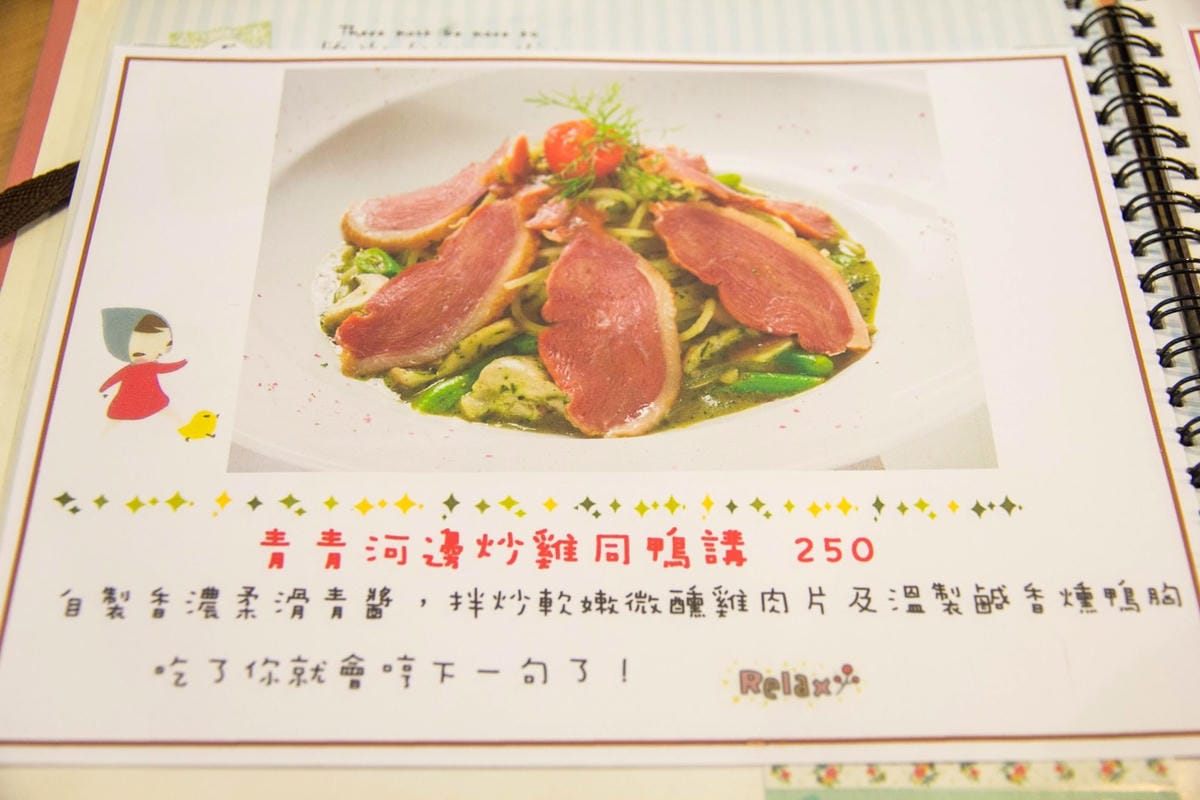 There must be more to
青青河邊炒雞同鴨講 250
自製香濃柔滑青醬，拌炒軟嫩微醺雞肉片及溫製鹹香燻鴨胸
吃了你就會哼下一句了！
Relax